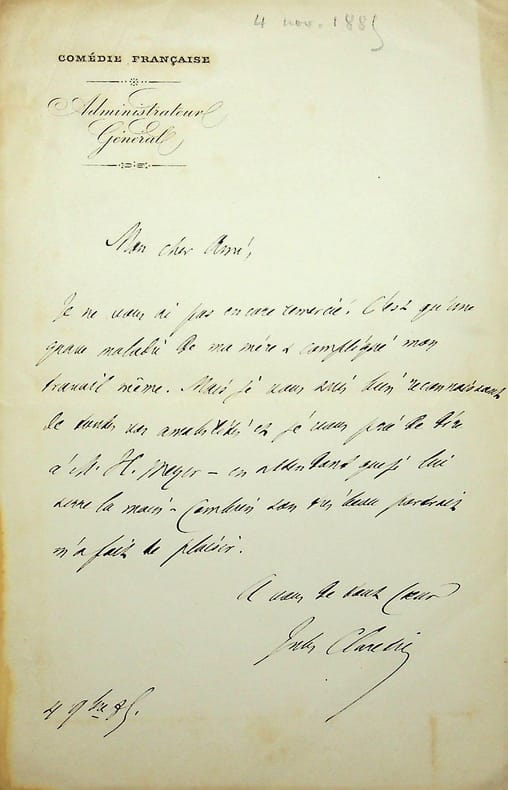 4 nov. 1885
COMÉDIE FRANÇAISE
Administrateur
Général
Mon cher Ami,
Je ne vous ai pas encore remercié. C'est qu'une
grave maladie de ma mère a compliqué mon
travail même. Mais je vous suis bien reconnaissant
de toutes vos amabilités et je vous prie de dire
à M. H. Meyer – en attendant que je lui
serre la main – combien son très beau portrait
m'a fait de plaisir.
A vous de tout Cœur
Jules Claretie
4 9bre 85.